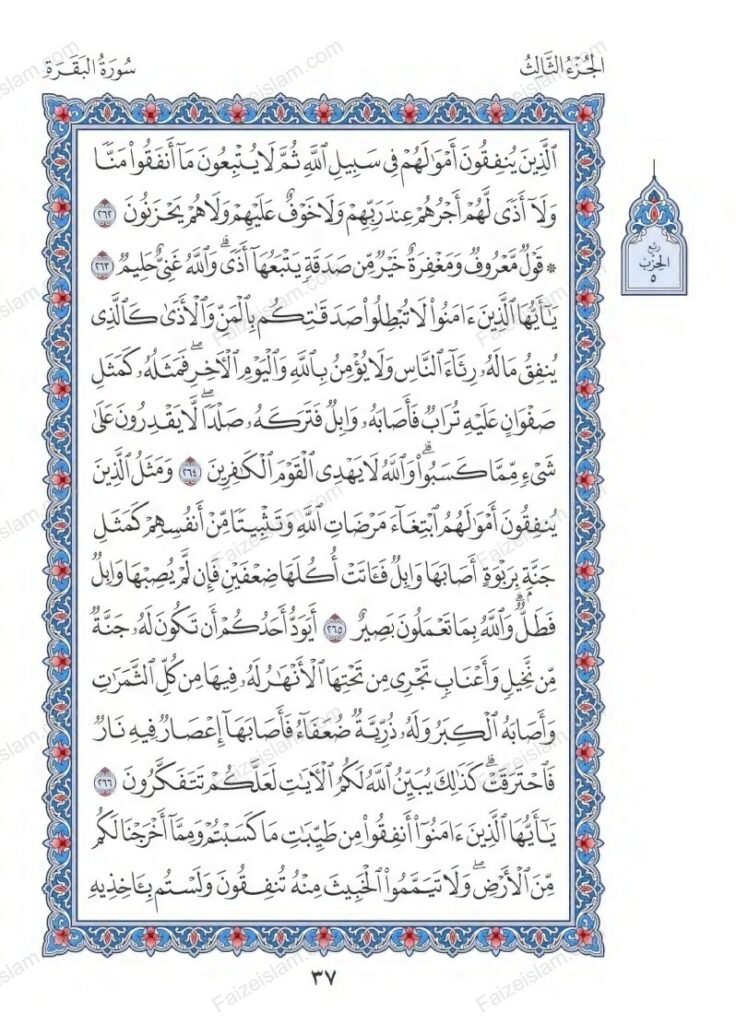 الجُزْءُ الثَّالِثُ
سُورَةُ البَقَرَةِ
الَّذِينَ يُنفِقُونَ أَمْوَٰلَهُمْ فِى سَبِيلِ ٱللَّهِ ثُمَّ لَا يُتْبِعُونَ مَآ أَنفَقُوا۟ مَنًّا
وَلَآ أَذًى لَّهُمْ أَجْرُهُمْ عِندَ رَبِّهِمْ وَلَا خَوْفٌ عَلَيْهِمْ وَلَا هُمْ يَحْزَنُونَ ٢٦٢
۞ قَوْلٌ مَّعْرُوفٌ وَمَغْفِرَةٌ خَيْرٌ مِّن صَدَقَةٍ يَتْبَعُهَآ أَذًى ۗ وَٱللَّهُ غَنِىٌّ حَلِيمٌ ٢٦٣
يَٰٓأَيُّهَا ٱلَّذِينَ ءَامَنُوا۟ لَا تُبْطِلُوا۟ صَدَقَٰتِكُم بِٱلْمَنِّ وَٱلْأَذَىٰ كَٱلَّذِى
يُنفِقُ مَالَهُۥ رِئَآءَ ٱلنَّاسِ وَلَا يُؤْمِنُ بِٱللَّهِ وَٱلْيَوْمِ ٱلْءَاخِرِ ۖ فَمَثَلُهُۥ كَمَثَلِ
صَفْوَانٍ عَلَيْهِ تُرَابٌ فَأَصَابَهُۥ وَابِلٌ فَتَرَكَهُۥ صَلْدًا ۖ لَّا يَقْدِرُونَ عَلَىٰ
شَىْءٍ مِّمَّا كَسَبُوا۟ ۗ وَٱللَّهُ لَا يَهْدِى ٱلْقَوْمَ ٱلْكَٰفِرِينَ ٢٦٤ وَمَثَلُ ٱلَّذِينَ
يُنفِقُونَ أَمْوَٰلَهُمُ ٱبْتِغَآءَ مَرْضَاتِ ٱللَّهِ وَتَثْبِيتًا مِّنْ أَنفُسِهِمْ كَمَثَلِ
جَنَّةٍۭ بِرَبْوَةٍ أَصَابَهَا وَابِلٌ فَـَٔاتَتْ أُكُلَهَا ضِعْفَيْنِ فَإِن لَّمْ يُصِبْهَا وَابِلٌ
فَطَلٌّ ۗ وَٱللَّهُ بِمَا تَعْمَلُونَ بَصِيرٌ ٢٦٥ أَيَوَدُّ أَحَدُكُمْ أَن تَكُونَ لَهُۥ جَنَّةٌ
مِّن نَّخِيلٍ وَأَعْنَابٍ تَجْرِى مِن تَحْتِهَا ٱلْأَنْهَٰرُ لَهُۥ فِيهَا مِن كُلِّ ٱلثَّمَرَٰتِ
وَأَصَابَهُ ٱلْكِبَرُ وَلَهُۥ ذُرِّيَّةٌ ضُعَفَآءُ فَأَصَابَهَآ إِعْصَارٌ فِيهِ نَارٌ
فَٱحْتَرَقَتْ ۗ كَذَٰلِكَ يُبَيِّنُ ٱللَّهُ لَكُمُ ٱلْءَايَٰتِ لَعَلَّكُمْ تَتَفَكَّرُونَ ٢٦٦
يَٰٓأَيُّهَا ٱلَّذِينَ ءَامَنُوٓا۟ أَنفِقُوا۟ مِن طَيِّبَٰتِ مَا كَسَبْتُمْ وَمِمَّآ أَخْرَجْنَا لَكُم
مِّنَ ٱلْأَرْضِ ۖ وَلَا تَيَمَّمُوا۟ ٱلْخَبِيثَ مِنْهُ تُنفِقُونَ وَلَسْتُم بِـَٔاخِذِيهِ
رُبْع
الحِزْب
٥
٣٧
Faizeislam.com